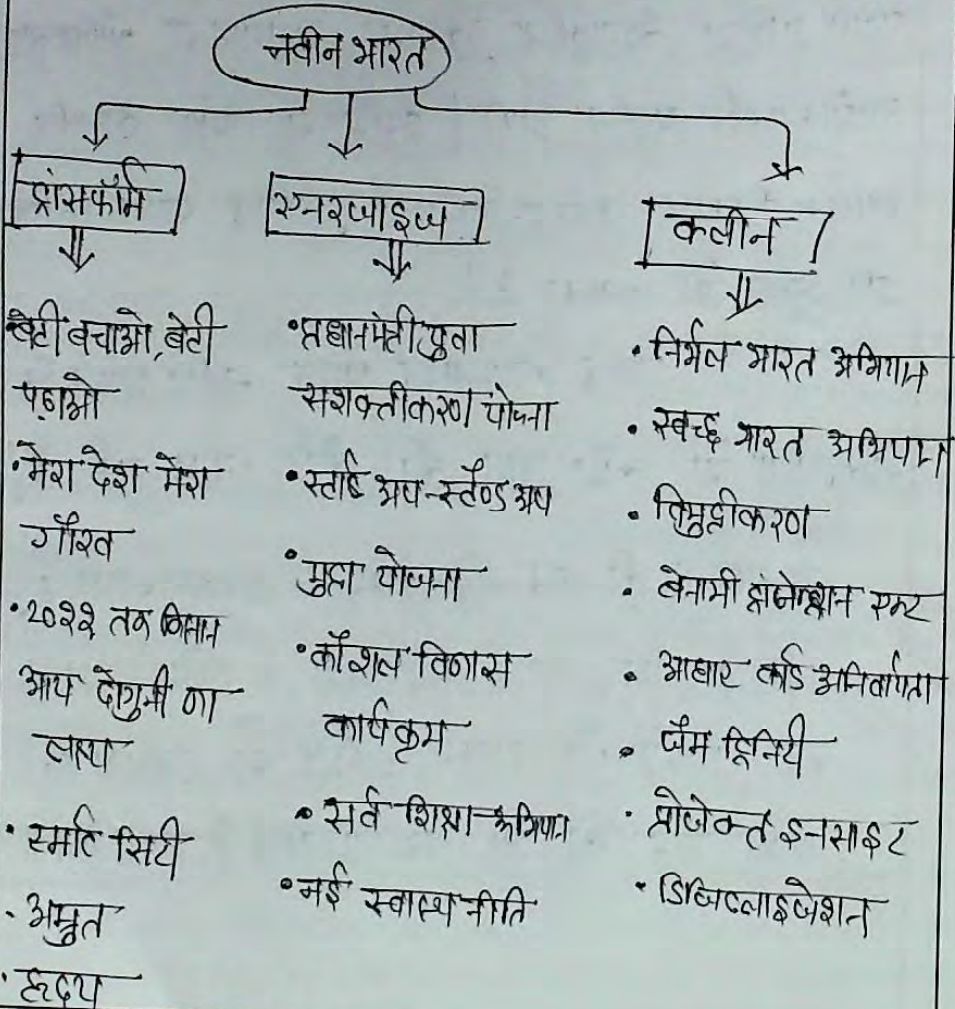 नवीन भारत
ट्रांसफॉर्म
बेटी बचाओ, बेटी
पढ़ाओ
• मेरा देश मेरा
गौरव
• 2022 तक किसान
आय दोगुनी का
लक्ष्य
• स्मार्ट सिटी
• अमृत
• हृदय
एनरजाइज
• प्रधानमंत्री युवा
सशक्तीकरण योजना
• स्टार्ट अप-स्टैण्ड अप
• मुद्रा योजना
• कौशल विकास
कार्यक्रम
• सर्व शिक्षा अभियान
• नई स्वास्थ्य नीति
क्लीन
• निर्मल भारत अभियान
• स्वच्छ भारत अभियान
• विमुद्रीकरण
• बेनामी ट्रांजेक्शन एक्ट
• आधार कार्ड अनिवार्यता
• जैम ट्रिनिटी
• प्रोजेक्ट इनसाइट
• डिजिटलाइजेशन